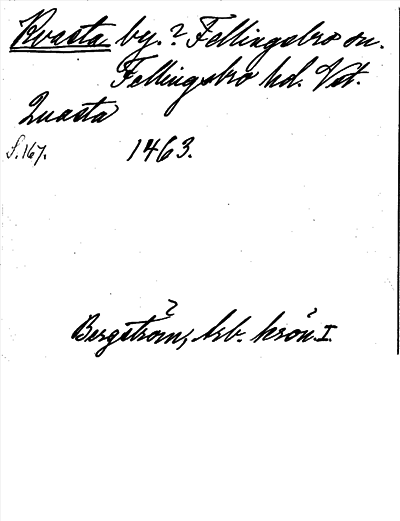 Kvasta by. ? Fellingsbro sn.
Fellingsbro hd. Vst.
Quasta
S. 167. 1463.
Bergström, Arb. krön. I.